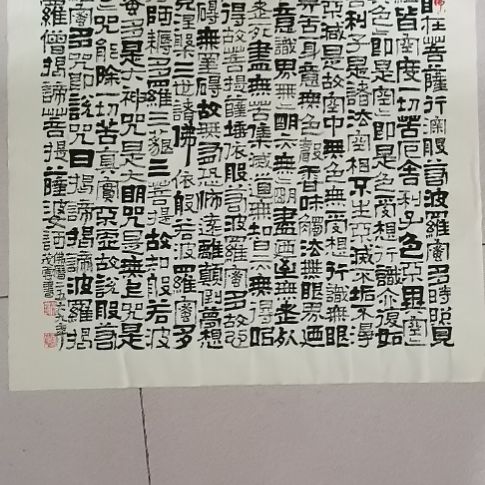 自在菩薩行深般若波羅蜜多時照見
皆空度一切苦厄舍利子色不異空
色即是空空即是色受想行識亦復如
舍利子是諸法空相不生不滅不垢不淨
不減是故空中無色無受想行識無眼
鼻舌身意無色聲香味觸法無眼界乃
意識界無無明亦無無明盡乃至無老死
老死盡無苦集滅道無智亦無得以
得故菩提薩埵依般若波羅蜜多故心
礙無罣礙故無有恐怖遠離顛倒夢想
究竟涅槃三世諸佛依般若波羅蜜多
阿耨多羅三藐三菩提故知般若波
多是大神咒是大明咒是無上咒是
咒能除一切苦真實不虛故說般若
蜜多咒即說咒曰揭諦揭諦波羅揭
羅僧揭諦菩提薩婆訶